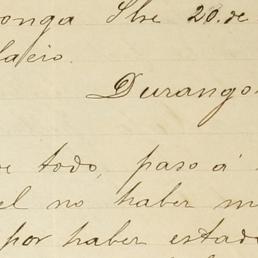 onga Sbre 20. de
lacio.
Durango.
e todo, paso á
el no haber m
por haber estad